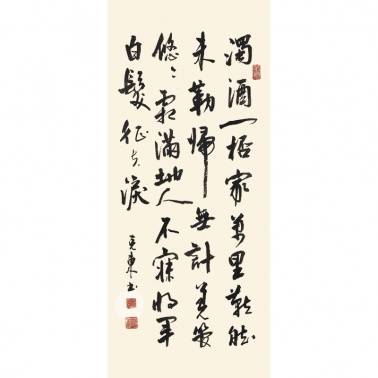 濁酒一桮家萬里燕然
未勒歸無計羌管
悠〻霜滿地人不寐將軍
白髮征夫淚
克東书